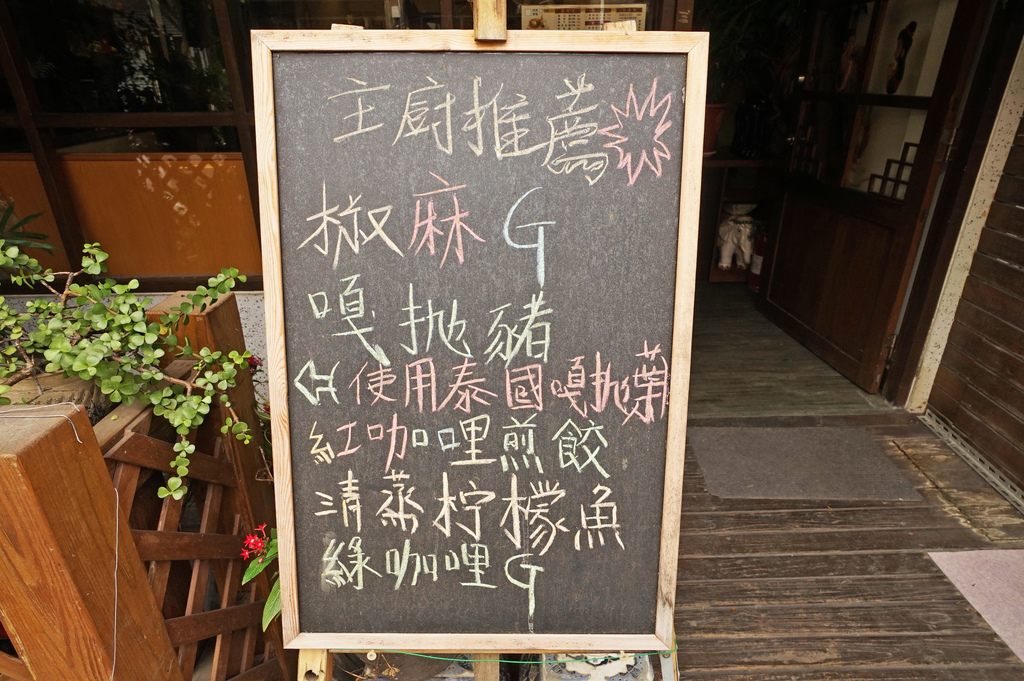 主廚推薦
椒麻G
嘎拋豬
使用泰國嘎拋葉
紅咖哩煎餃
清蒸柠檬魚
綠咖哩G